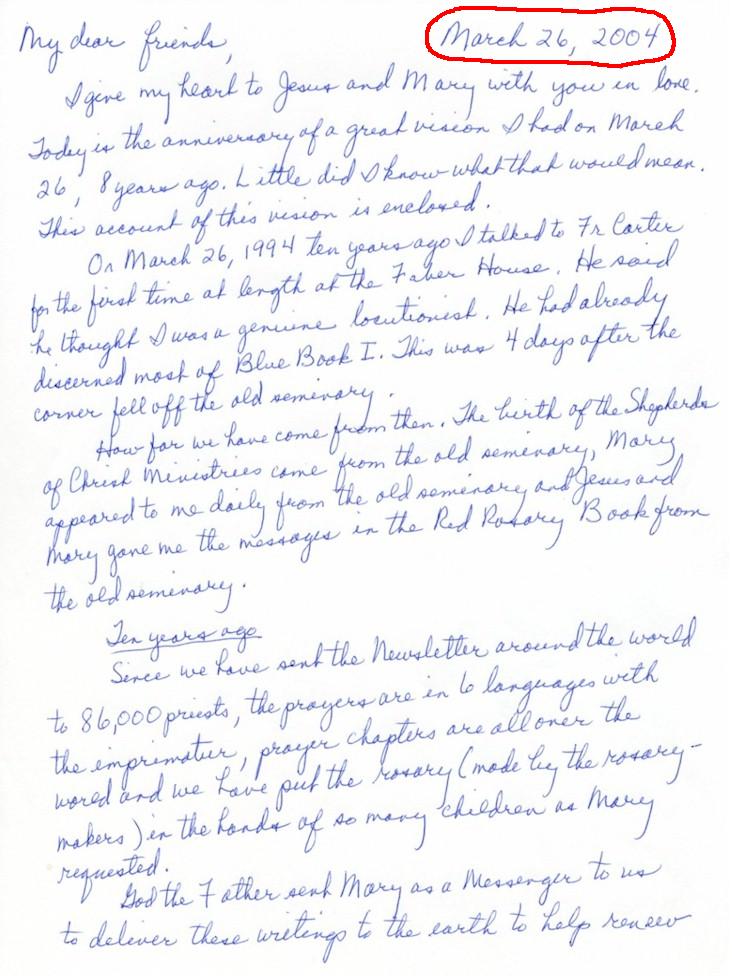 March 26, 2004
My dear friends,
I give my heart to Jesus and Mary with you in love.
Today is the anniversary of a great vision I had on March
26, 8 years ago. Little did I know what that would mean.
This account of this vision is enclosed.
On March 26, 1994 ten years ago I talked to Fr Carter
for the first time at length at the Faber House. He said
he thought I was a genuine locutionist. He had already
discerned most of Blue Book I. This was 4 days after the
corner fell off the old seminary.
How far we have come from then. The birth of the Shepherds
of Christ Ministries came from the old seminary, Mary
appeared to me daily from the old seminary and Jesus and
Mary gave me the messages in the Red Rosary Book from
the old seminary.
Ten years ago
Since we have sent the Newsletter around the world
to 86,000 priests, the prayers are in 6 languages with
the imprimatur, prayer chapters are all over the
world and we have put the rosary (made by the rosary-
makers) in the hands of so many children as Mary
requested.
God the Father sent Mary as a Messenger to us
to deliver these writings to the earth to help renew